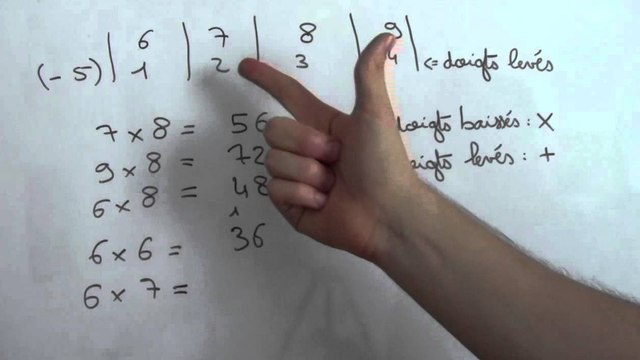 | 6 | 7 | 8 | 9 |
(- 5) | 1 | 2 | 3 | 4 | <= doigts levés
7 x 8 = 56
doigts baissés : x
9 x 8 = 72
doigts levés : +
6 x 8 = 48
1
6 x 6 = 36
6 x 7 =